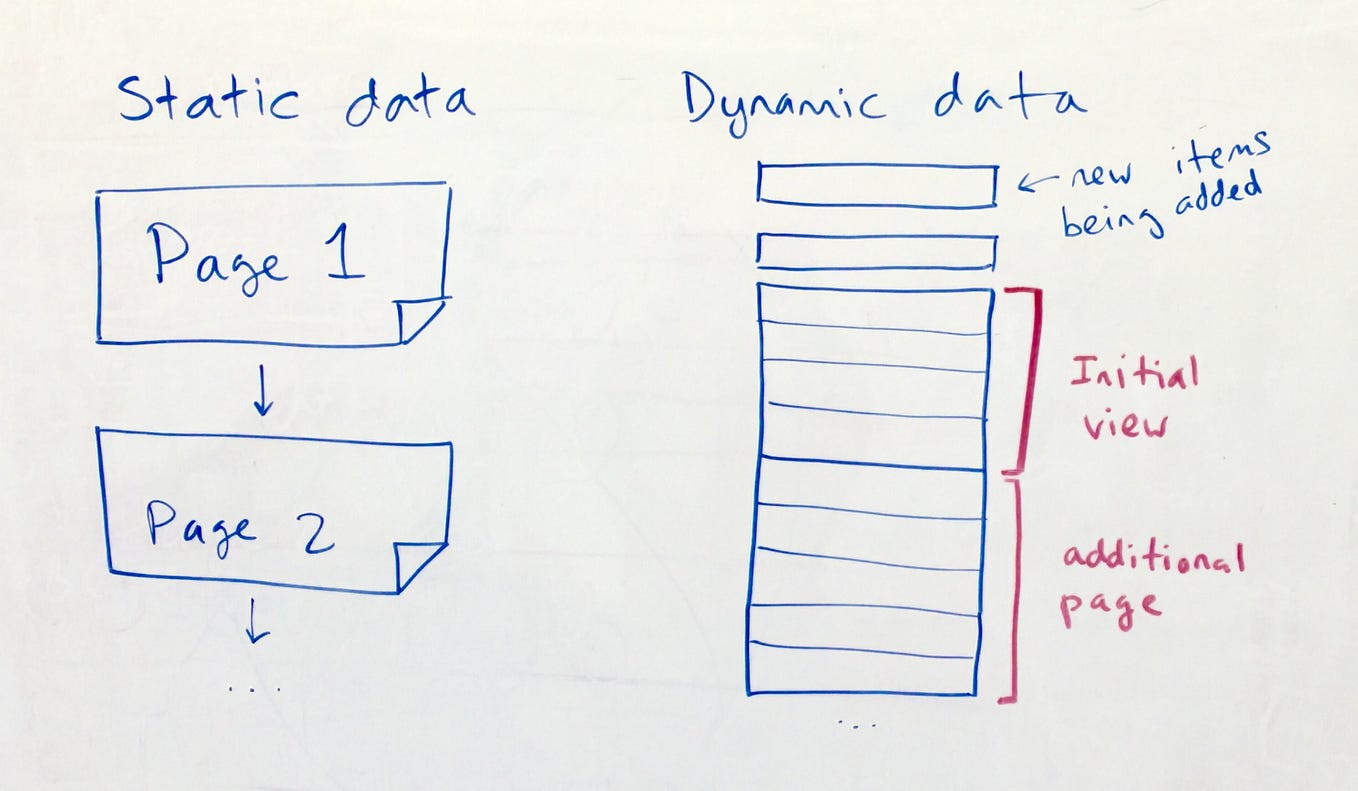 Static data
Page 1
Page 2
...
Dynamic data
← new items
being added
Initial
view
additional
page
...